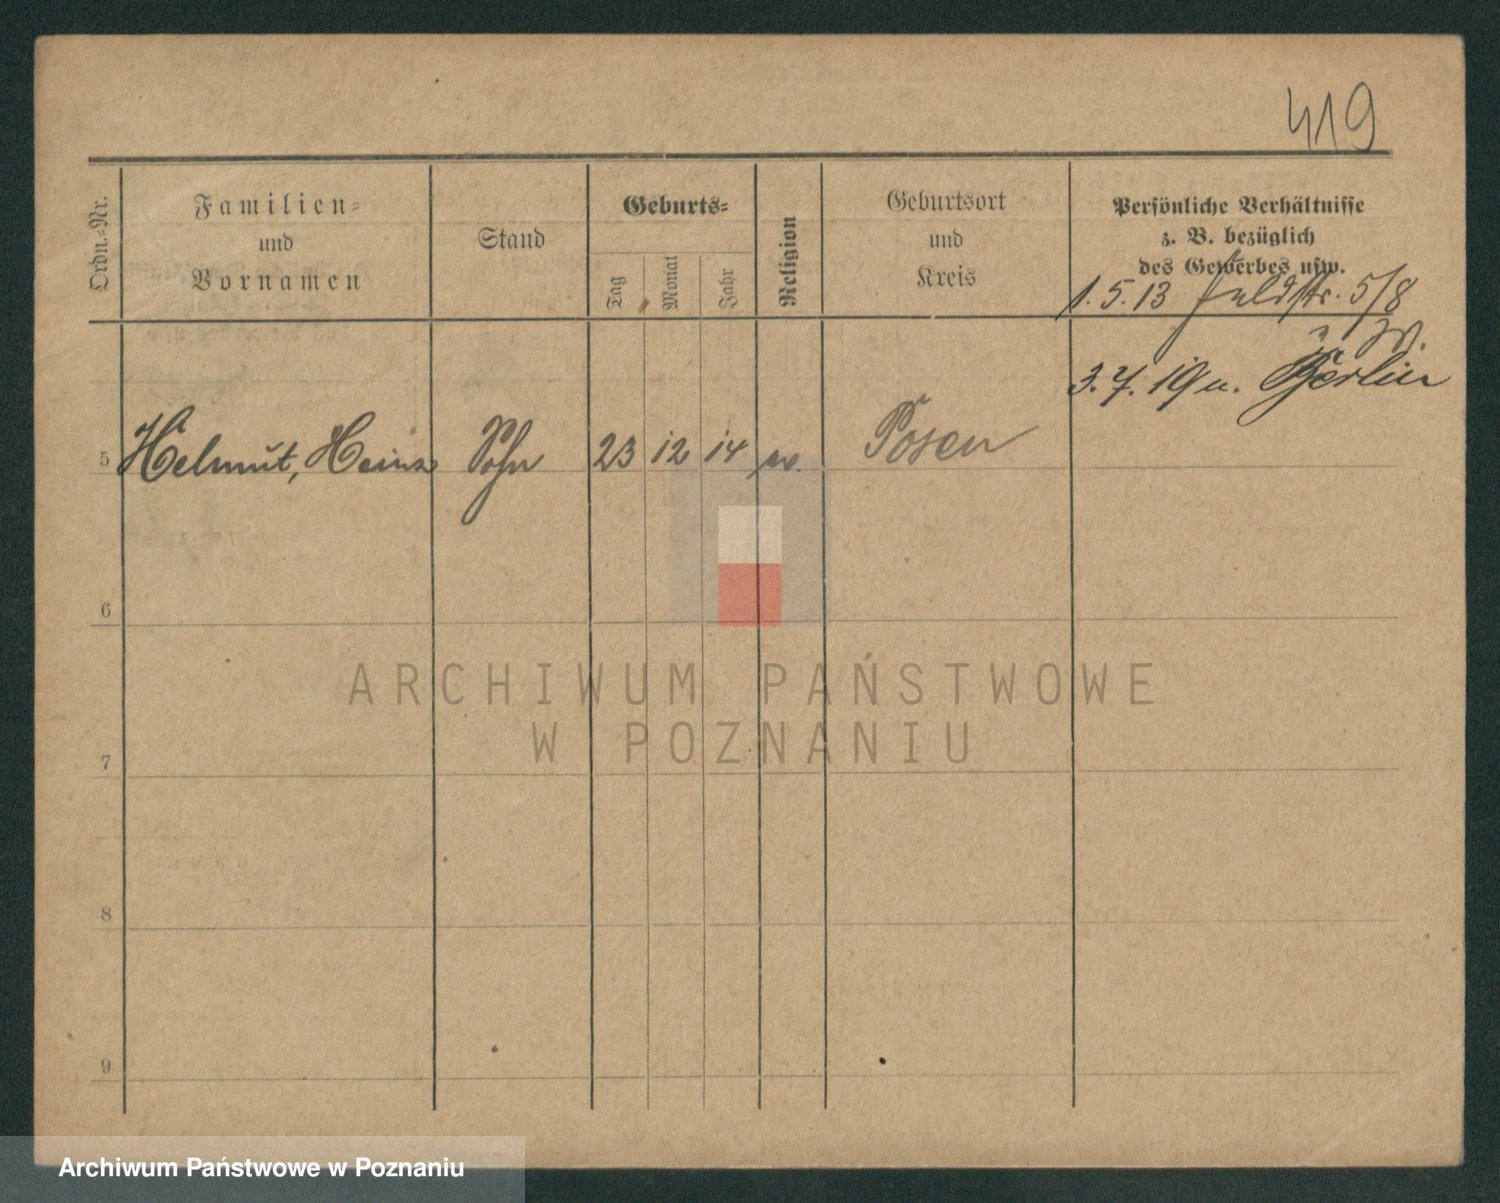 419
Ordn.-Nr.
Familien-
und
Vornamen
Stand
Geburts-
Tag
Monat
Jahr
Religion
Geburtsort
und
Kreis
Persönliche Verhältnisse
z. B. bezüglich
des Gewerbes usw.
1. 5. 13 Feldstr. 5/8
3. 7. 19 n. Berlin
5 Helmut, Heinz Sohn 23 12 14 Posen
6
7
8
9
ARCHIWUM PAŃSTWOWE
W POZNANIU
Archiwum Państwowe w Poznaniu